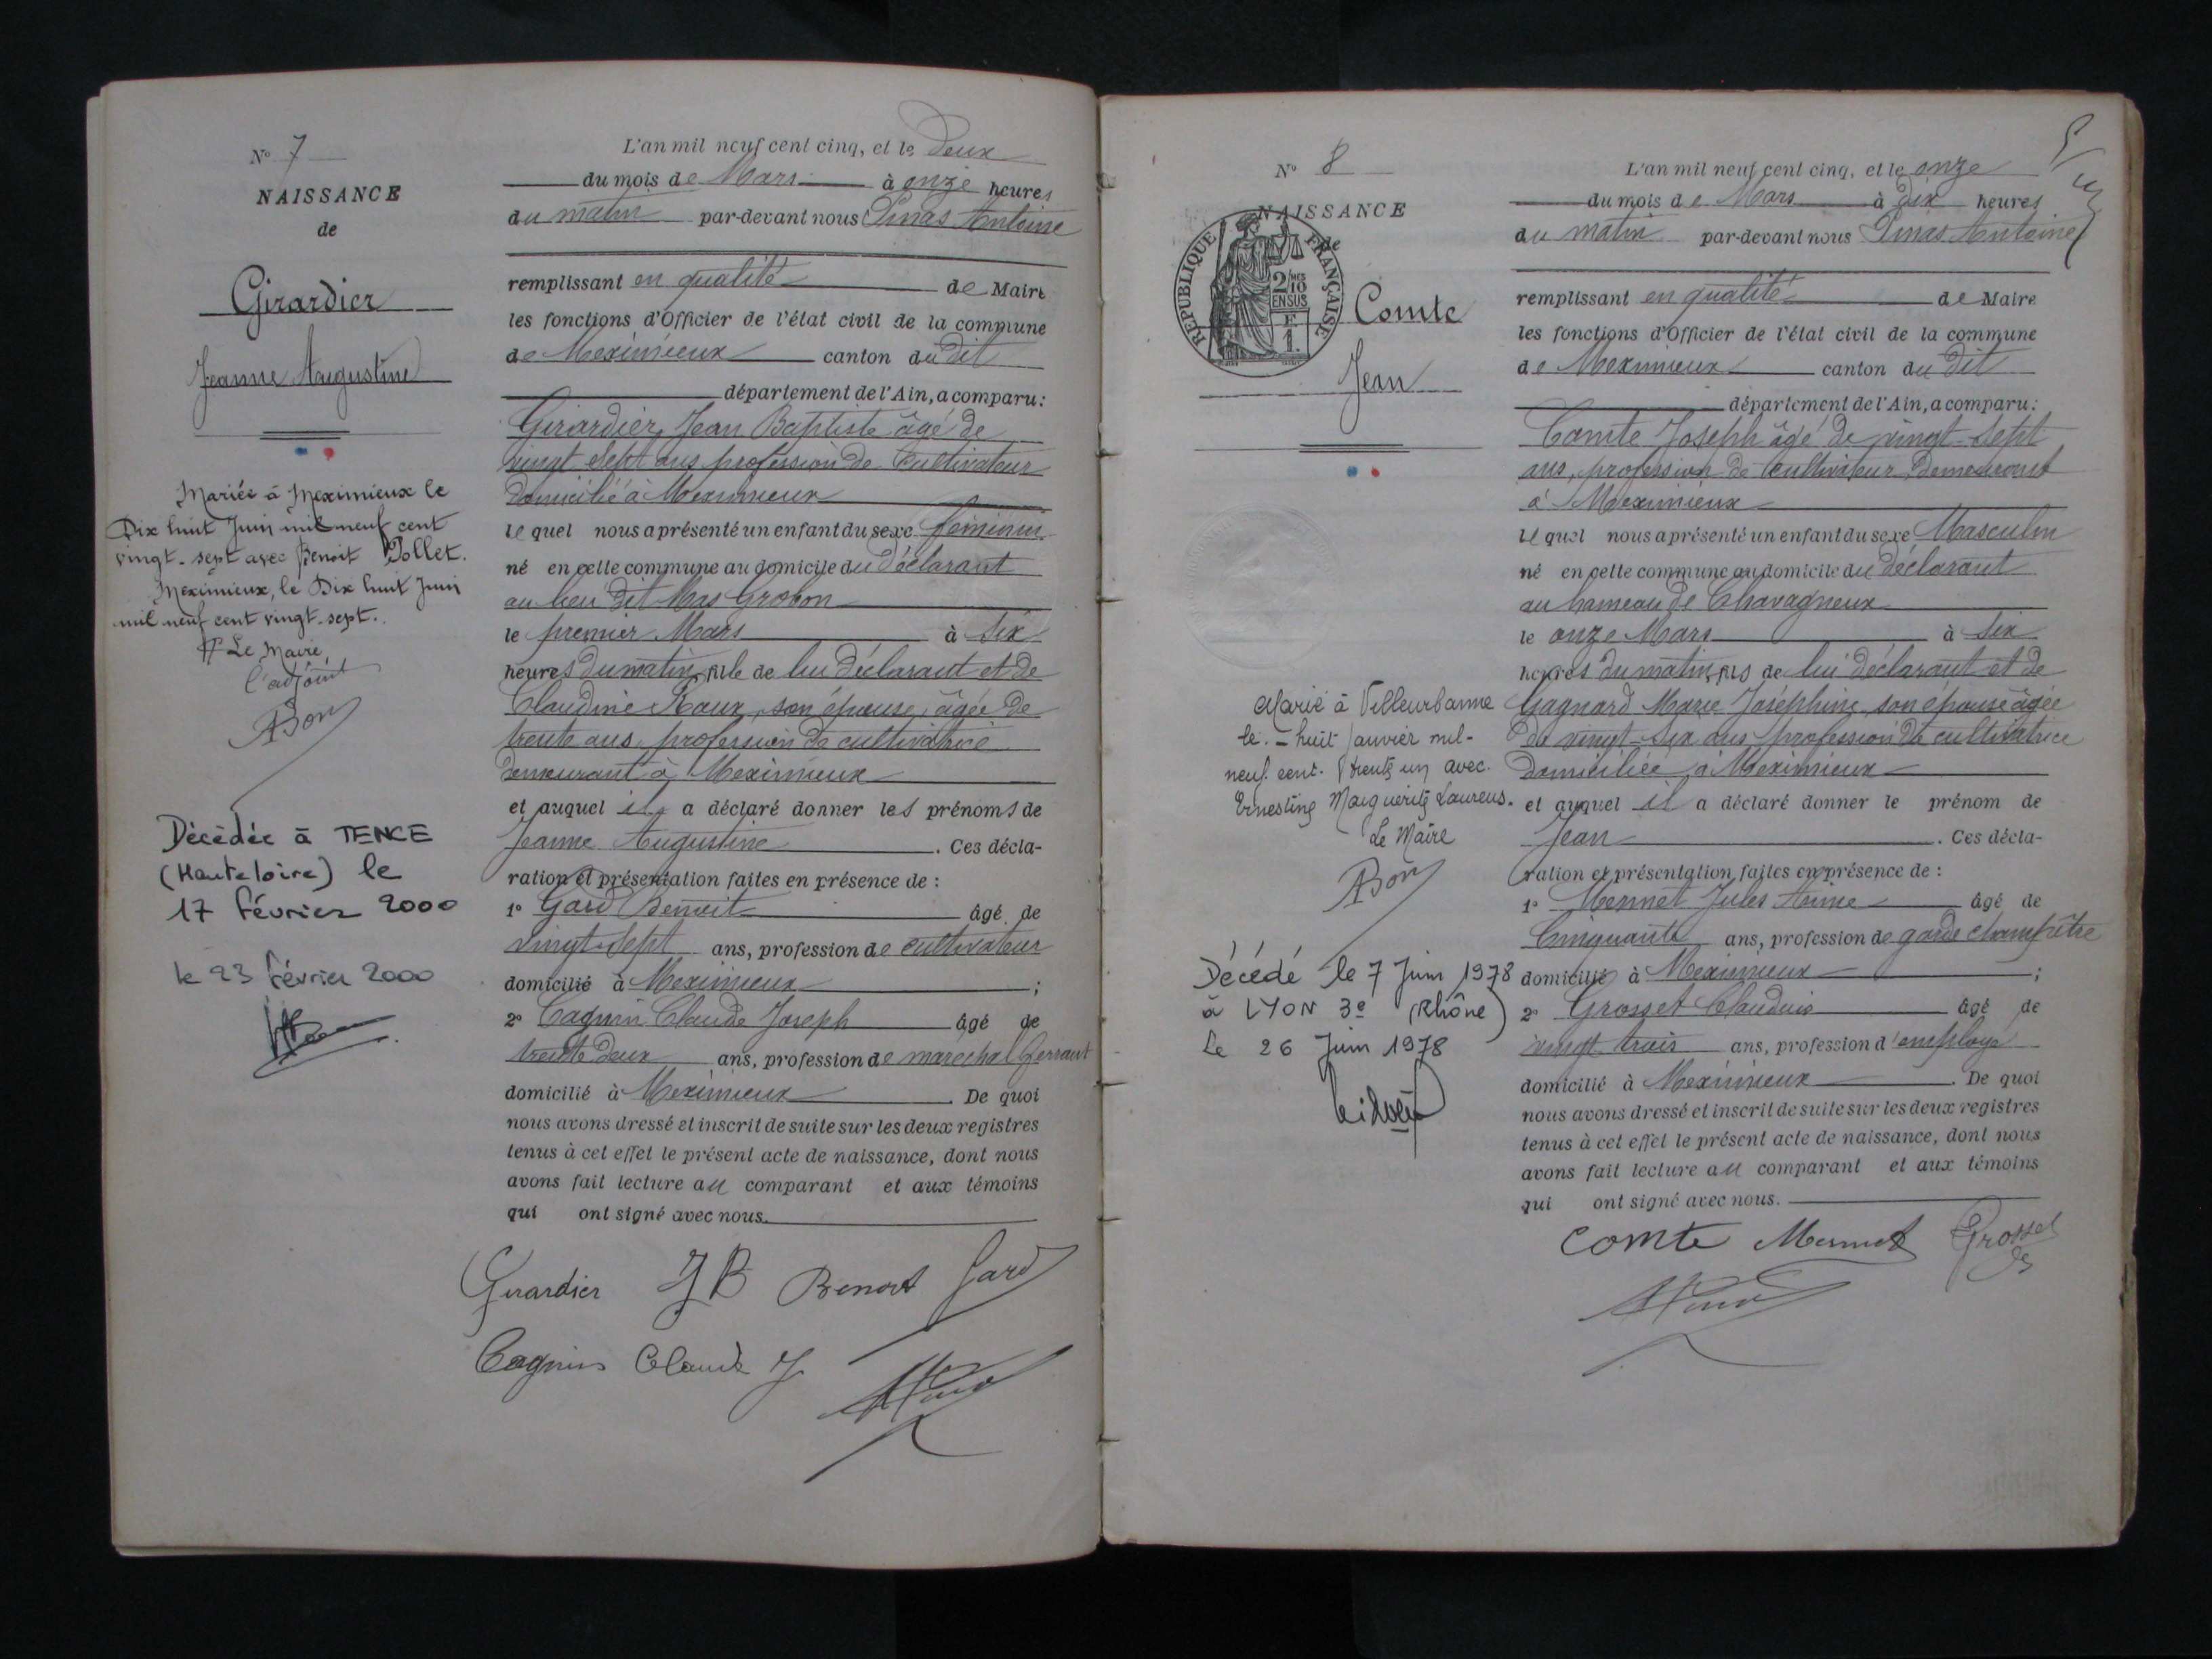 N° 7
NAISSANCE
de
Girardier
Jeanne Augustine
Mariée à Meximieux le
Dix huit Juin mil neuf cent
vingt-sept avec Benoit Pollet.
Meximieux, le Dix huit Juin
mil neuf cent vingt-sept.
Le Maire,
l'adjoint
Décédée à TENCE
(Haute Loire) le
17 février 2000
le 23 février 2000
L'an mil neuf cent cinq, et le deux
du mois de Mars à onze heures
du matin par-devant nous Pinas Antoine
remplissant en qualité de Maire
les fonctions d'Officier de l'état civil de la commune
de Meximieux canton du dit
département de l'Ain, a comparu:
Girardier, Jean Baptiste âgé de
vingt sept ans profession de Cultivateur
domicilié à Meximieux
lequel nous a présenté un enfant du sexe féminin
né en cette commune au domicile du déclarant
au lieu dit Mas Grobon
le premier Mars à six
heures du matin, fille de lui déclarant et de
Claudine Roux, son épouse, âgée de
trente ans, profession de cultivatrice
demeurant à Meximieux
et auquel il a déclaré donner les prénoms de
Jeanne Augustine. Ces décla-
ration et présentation faites en présence de :
1° Gard Benoit âgé de
vingt-sept ans, profession de cultivateur
domicilié à Meximieux ;
2° Cagnin Claude Joseph âgé de
trente deux ans, profession de maréchal ferrant
domicilié à Meximieux. De quoi
nous avons dressé et inscrit de suite sur les deux registres
tenus à cet effet le présent acte de naissance, dont nous
avons fait lecture au comparant et aux témoins
qui ont signé avec nous.
Girardier JB Benoit Gard
Cagnin Claude J
N° 8
NAISSANCE
de
RÉPUBLIQUE FRANÇAISE
2/10 MES
EN SUS
F.
1.
Comte
Jean
Marié à Villeurbanne
le huit janvier mil-
neuf cent trente un avec
Ernestine Marguerite Laurens.
Le Maire
Décédé le 7 Juin 1978
à LYON 3e (Rhône)
Le 26 Juin 1978
L'an mil neuf cent cinq, et le onze
du mois de Mars à dix heures
du matin par-devant nous Pinas Antoine
remplissant en qualité de Maire
les fonctions d'Officier de l'état civil de la commune
de Meximieux canton du dit
département de l'Ain, a comparu:
Comte Joseph âgé de vingt-sept
ans, profession de Cultivateur, demeurant
à Meximieux
lequel nous a présenté un enfant du sexe Masculin
né en cette commune au domicile du déclarant
au hameau de Chavagneux
le onze Mars à six
heures du matin, fils de lui déclarant et de
Gagnard Marie Joséphine, son épouse âgée
de vingt-six ans profession de cultivatrice
domiciliée à Meximieux
et auquel il a déclaré donner le prénom de
Jean. Ces décla-
ration et présentation faites en présence de :
1° Mermet Jules Aimé âgé de
Cinquante ans, profession de garde champêtre
domicilié à Meximieux ;
2° Grosset Claudius âgé de
vingt trois ans, profession d'employé
domicilié à Meximieux. De quoi
nous avons dressé et inscrit de suite sur les deux registres
tenus à cet effet le présent acte de naissance, dont nous
avons fait lecture au comparant et aux témoins
qui ont signé avec nous.
Comte Mermet Grosset